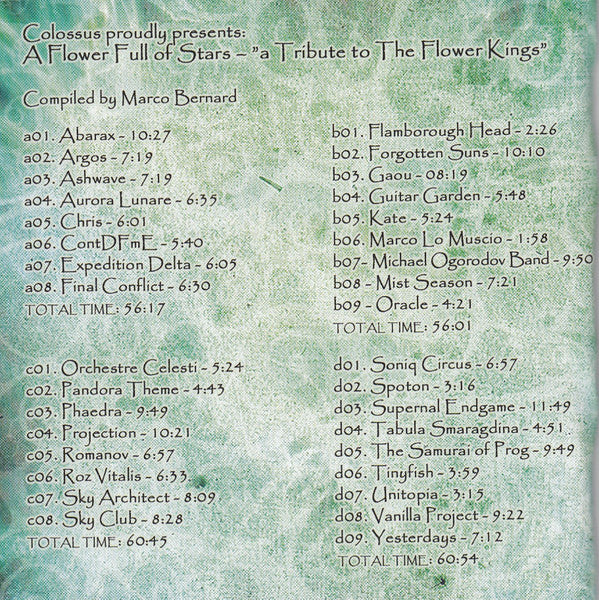 Colossus proudly presents:
A Flower Full of Stars – "a Tribute to The Flower Kings"
Compiled by Marco Bernard
a01. Abarax - 10:27
a02. Argos - 7:19
a03. Ashwave - 7:19
a04. Aurora Lunare - 6:35
a05. Chris - 6:01
a06. ContDFmE - 5:40
a07. Expedition Delta - 6:05
a08. Final Conflict - 6:30
TOTAL TIME: 56:17
b01. Flamborough Head - 2:26
b02. Forgotten Suns - 10:10
b03. Gaou - 08:19
b04. Guitar Garden - 5:48
b05. Kate - 5:24
b06. Marco Lo Muscio - 1:58
b07- Michael Ogorodov Band - 9:50
b08 - Mist Season - 7:21
b09 - Oracle - 4:21
TOTAL TIME: 56:01
c01. Orchestre Celesti - 5:24
c02. Pandora Theme - 4:43
c03. Phaedra - 9:49
c04. Projection - 10:21
c05. Romanov - 6:57
c06. Roz Vitalis - 6:33
c07. Sky Architect - 8:09
c08. Sky Club - 8:28
TOTAL TIME: 60:45
d01. Soniq Circus - 6:57
d02. Spoton - 3:16
d03. Supernal Endgame - 11:49
d04. Tabula Smaragdina - 4:51
d05. The Samurai of Prog - 9:49
d06. Tinyfish - 3:59
d07. Unitopia - 3:15
d08. Vanilla Project - 9:22
d09. Yesterdays - 7:12
TOTAL TIME: 60:54